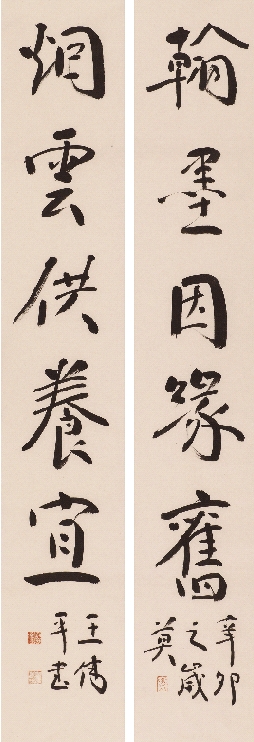 翰墨因緣舊
辛卯
之歲
莫
烟雲供養宜
王偉
平書